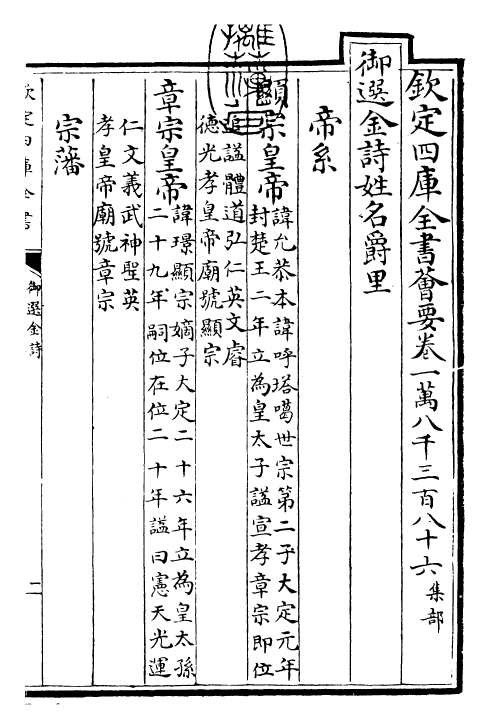 欽定四庫全書薈要卷一萬八千三百八十六 集部
御選金詩姓名爵里
帝系
顯宗皇帝 諱允恭本諱呼塔噶世宗第二子大定元年
封楚王二年立為皇太子諡宣孝章宗即位
追諡體道弘仁英文睿
德光孝皇帝廟號顯宗
章宗皇帝 諱璟顯宗嫡子大定二十六年立為皇太孫
二十九年嗣位在位二十年諡曰憲天光運
仁文義武神聖英
孝皇帝廟號章宗
宗藩
欽定四庫全書
御選金詩
二